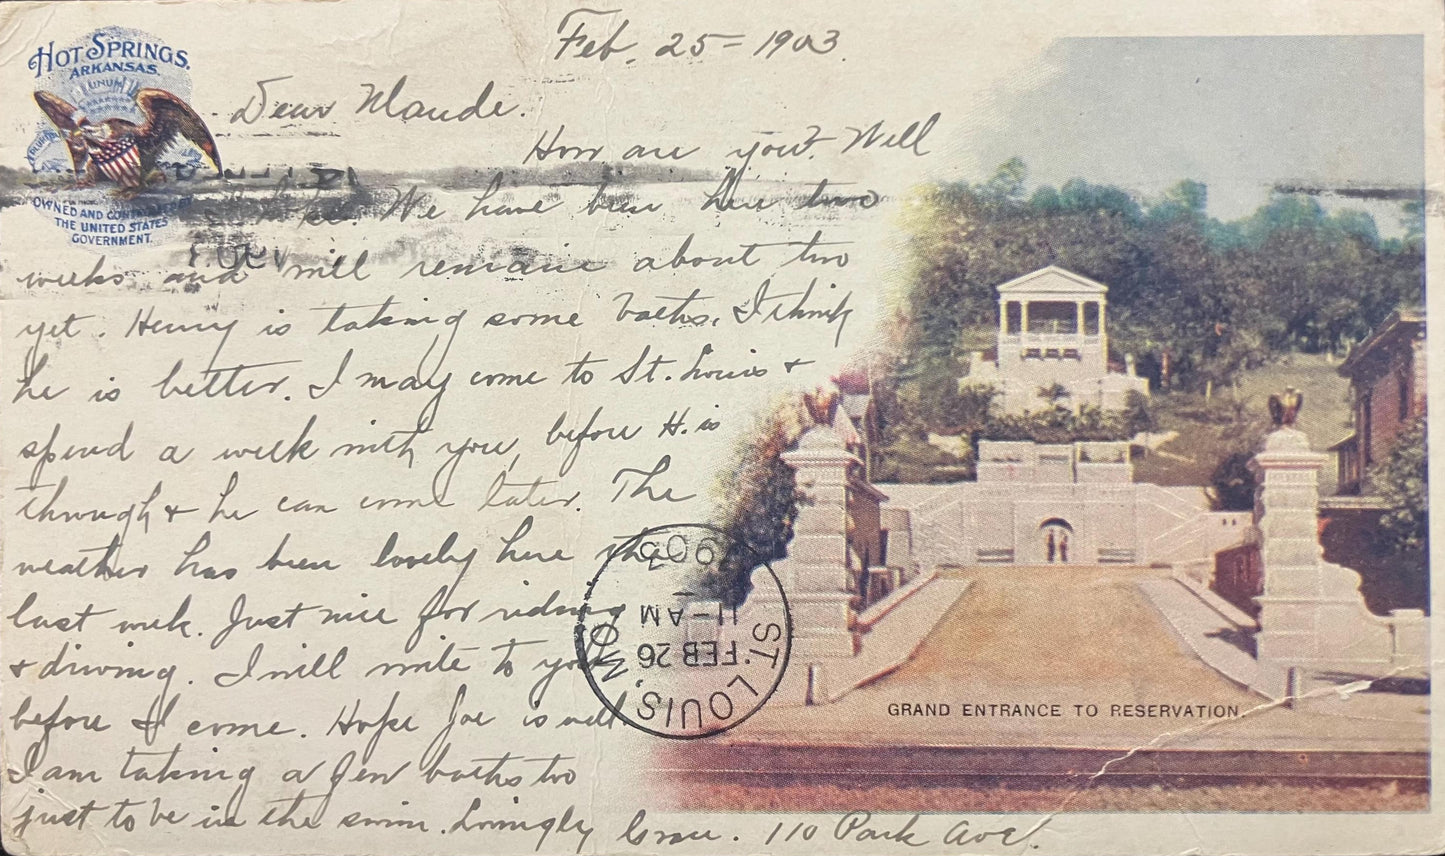 HOT SPRINGS.
ARKANSAS.
UNUM
OWNED AND CONTROLLED BY
THE UNITED STATES
GOVERNMENT.
Feb. 25 = 1903.
Dear Maude.
How are you? Well
We have been here two
weeks and will remain about two
yet. Henry is taking some baths. I think
he is better. I may come to St. Louis &
spend a week with you, before H. is
through & he can come later. The
weather has been lovely here the
last week. Just nice for riding
& driving. I will write to you
before I come. Hope Joe is well
I am taking a few baths too
just to be in the swim. Lovingly Grace. 110 Park Ave.
ST. LOUIS, MO.
FEB 26
11-AM
1903
GRAND ENTRANCE TO RESERVATION.